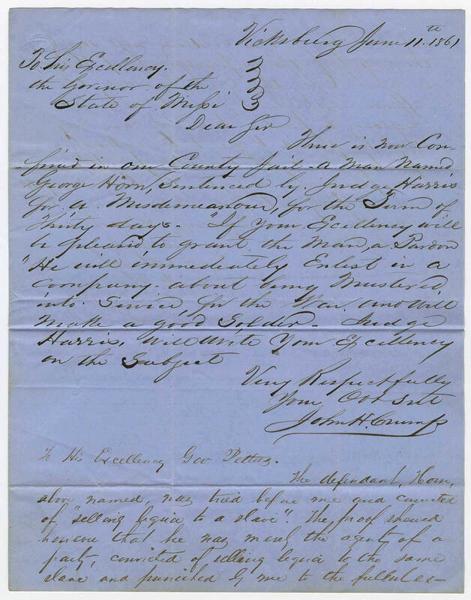 Vicksburg June 11.th 1861
To His Excellency.
the Govinor of the
State of Missi
Dear Sir
There is now Con-
fined in our County Jail - a Man Named
George Horn, Sentenced by Judge Harris
for a Misdemeanour, for the Term of
Thirty days - "If Your Excellency will
be pleased to grant the Man, a Pardon
"He will immediately Enlist in a
Company about being Mustered,
into Service for the War, and will
Make a good Soldier - Judge
Harris, will write Your Excellency
on the Subject
Very Respectfully
Your Obt Svt
John H. Crump
To His Excellency Gov Pettus.
The defendant, Horn,
above named, was tried before me and convicted
of "selling liquor to a slave". The proof showed
however that he was merely the agent of a
party, convicted of selling liquor to the same
slave and punished by me to the fullest ex-